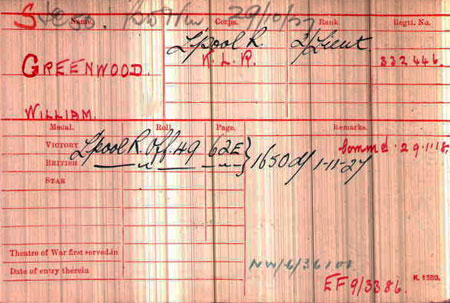 Name. Corps. Rank Regtl. No.
29/10/27
L'pool R. 2/Lieut.
GREENWOOD. K. L. R. 332446.
WILLIAM.
Medal. Roll. Page. Remarks.
VICTORY L'pool R. Off. 49 62E Commd. 29.1.18.
BRITISH 1650 1-11-27
STAR
Theatre of War first served in
Date of entry therein
NW/6/36100
K. 1380.
EF 9/3386.